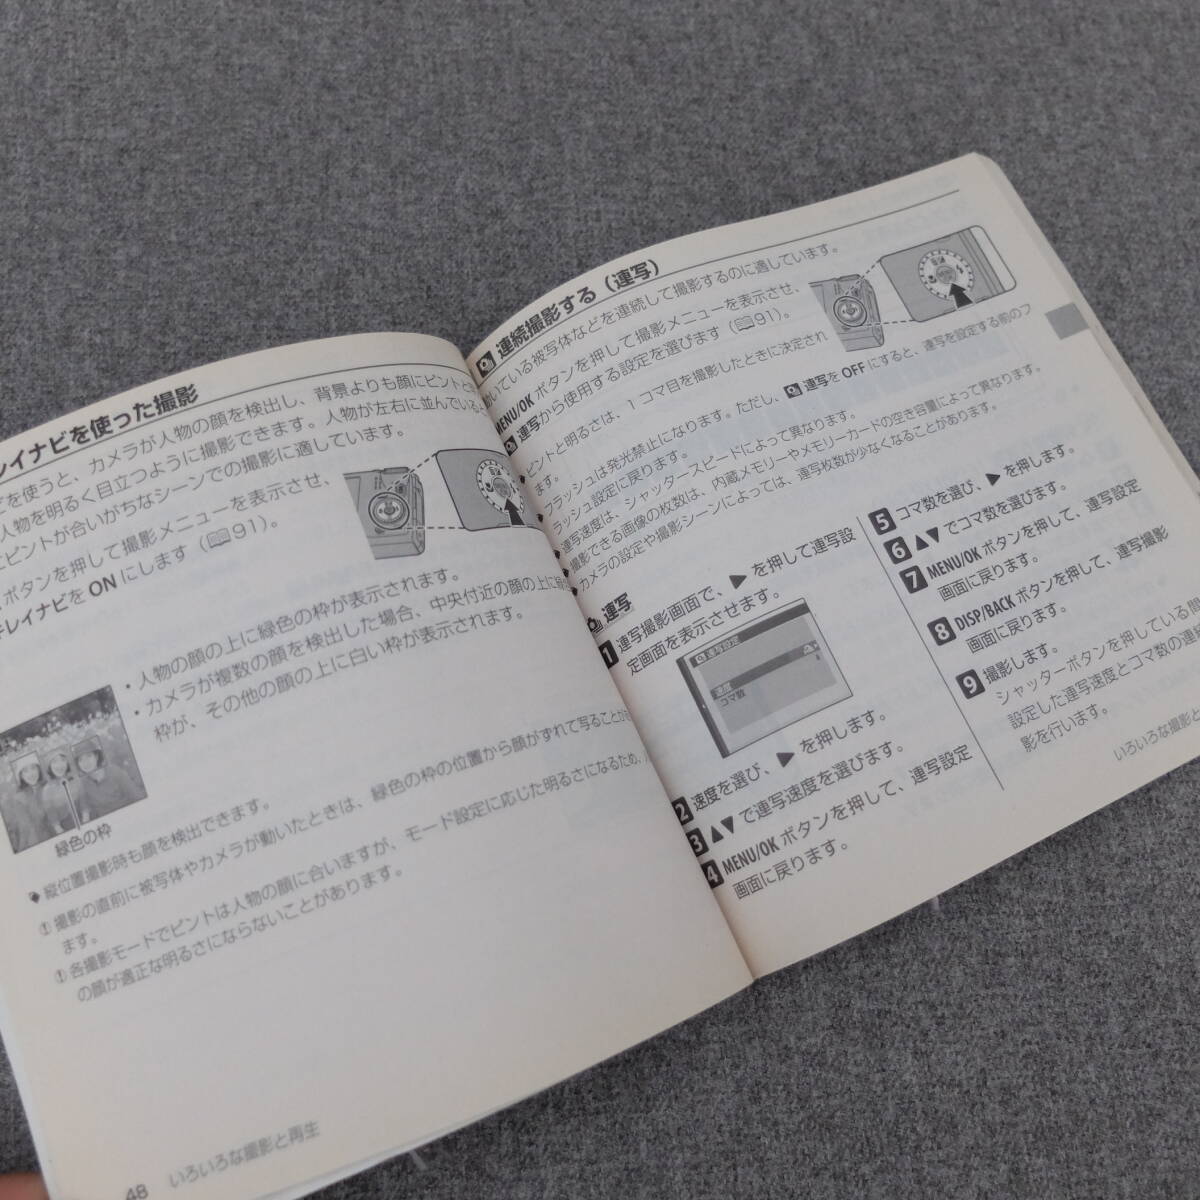 レイナビを使った撮影
を使うと、カメラが人物の顔を検出し、背景よりも顔にピントと
人物を明るく目立つように撮影できます。人物が左右に並んでいる
ピントが合いがちなシーンでの撮影に適しています。
ボタンを押して撮影メニューを表示させ、
キレイナビを ON にします（91）。
・人物の顔の上に緑色の枠が表示されます。
・カメラが複数の顔を検出した場合、中央付近の顔の上に
枠が、その他の顔の上に白い枠が表示されます。
緑色の枠
◆ 縦位置撮影時も顔を検出できます。
① 撮影の直前に被写体やカメラが動いたときは、緑色の枠の位置から顔がずれて写ることが
ます。
① 各撮影モードでピントは人物の顔に合いますが、モード設定に応じた明るさになるため、
の顔が適正な明るさにならないことがあります。
48 いろいろな撮影と再生
連続撮影する（連写）
いている被写体などを連続して撮影するのに適しています。
MENU/OK ボタンを押して撮影メニューを表示させ、
連写から使用する設定を選びます（91）。
ピントと明るさは、1 コマ目を撮影したときに決定され
ます。
フラッシュは発光禁止になります。ただし、連写を OFF にすると、連写を設定する前のフ
ラッシュ設定に戻ります。
連写速度は、シャッタースピードによって異なります。
撮影できる画像の枚数は、内蔵メモリーやメモリーカードの空き容量によって異なります。
カメラの設定や撮影シーンによっては、連写枚数が少なくなることがあります。
連写
1 連写撮影画面で、▶ を押して連写設
定画面を表示させます。
連写設定
速度
コマ数
2 速度を選び、▶ を押します。
3 ▲▼で連写速度を選びます。
4 MENU/OK ボタンを押して、連写設定
画面に戻ります。
5 コマ数を選び、▶ を押します。
6 ▲▼でコマ数を選びます。
7 MENU/OK ボタンを押して、連写設定
画面に戻ります。
8 DISP/BACK ボタンを押して、連写撮影
画面に戻ります。
9 撮影します。
シャッターボタンを押している
設定した連写速度とコマ数の連
影を行います。
いろいろな撮影と